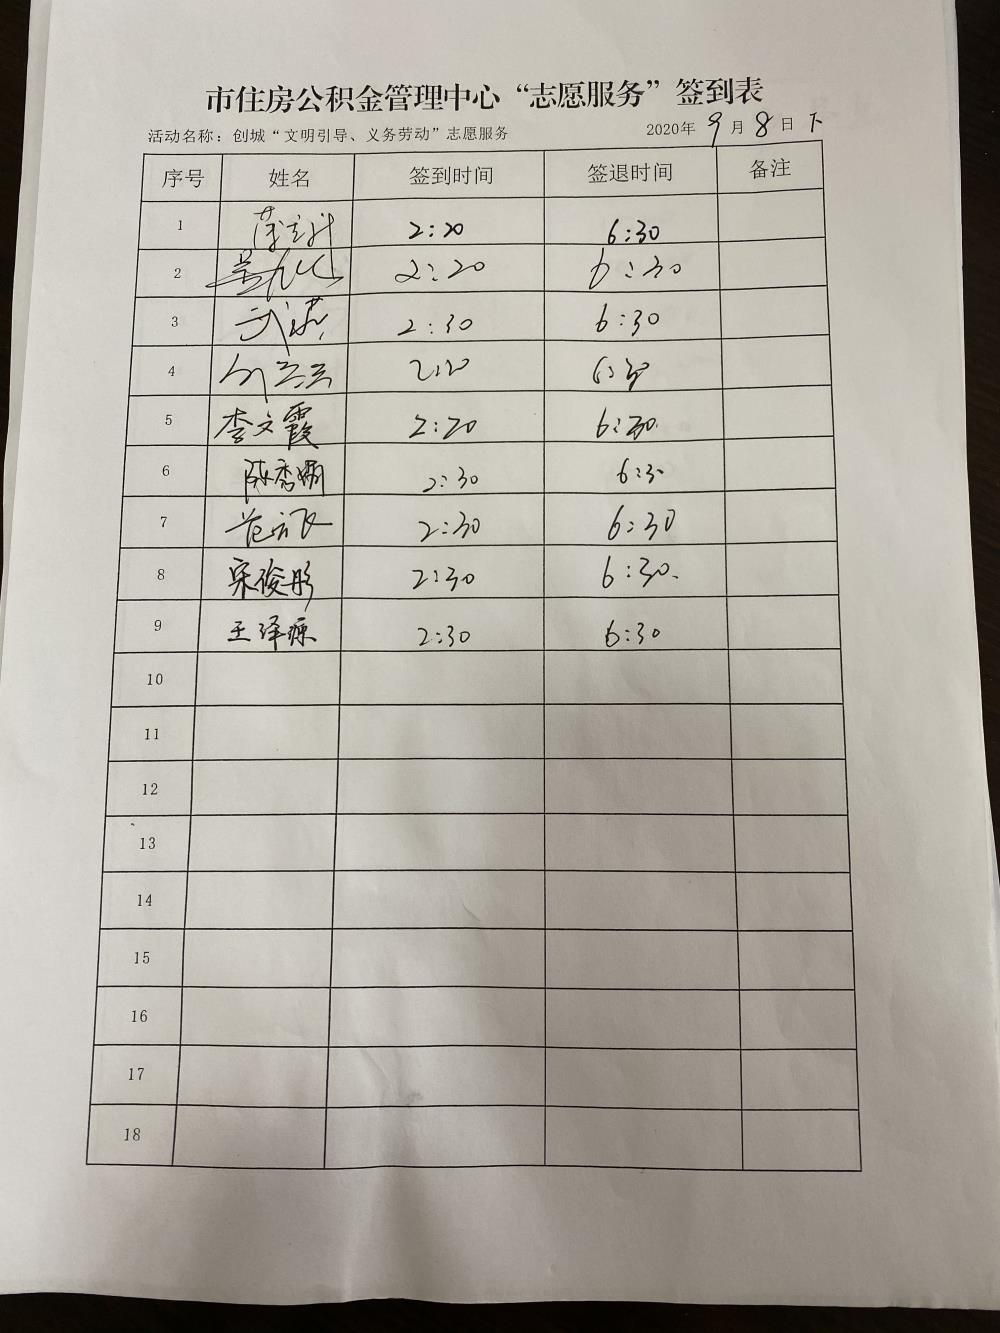 市住房公积金管理中心“志愿服务”签到表
活动名称：创城“文明引导、义务劳动”志愿服务 2020年 9 月 8 日 下
序号 姓名 签到时间 签退时间 备注
1 2:20 6:30
2 2:20 6:30
3 2:30 6:30
4 2:20 6:30
5 李文霞 2:20 6:30
6 陈秀娟 2:30 6:30
7 2:30 6:30
8 宋俊彤 2:30 6:30
9 王泽源 2:30 6:30
10
11
12
13
14
15
16
17
18